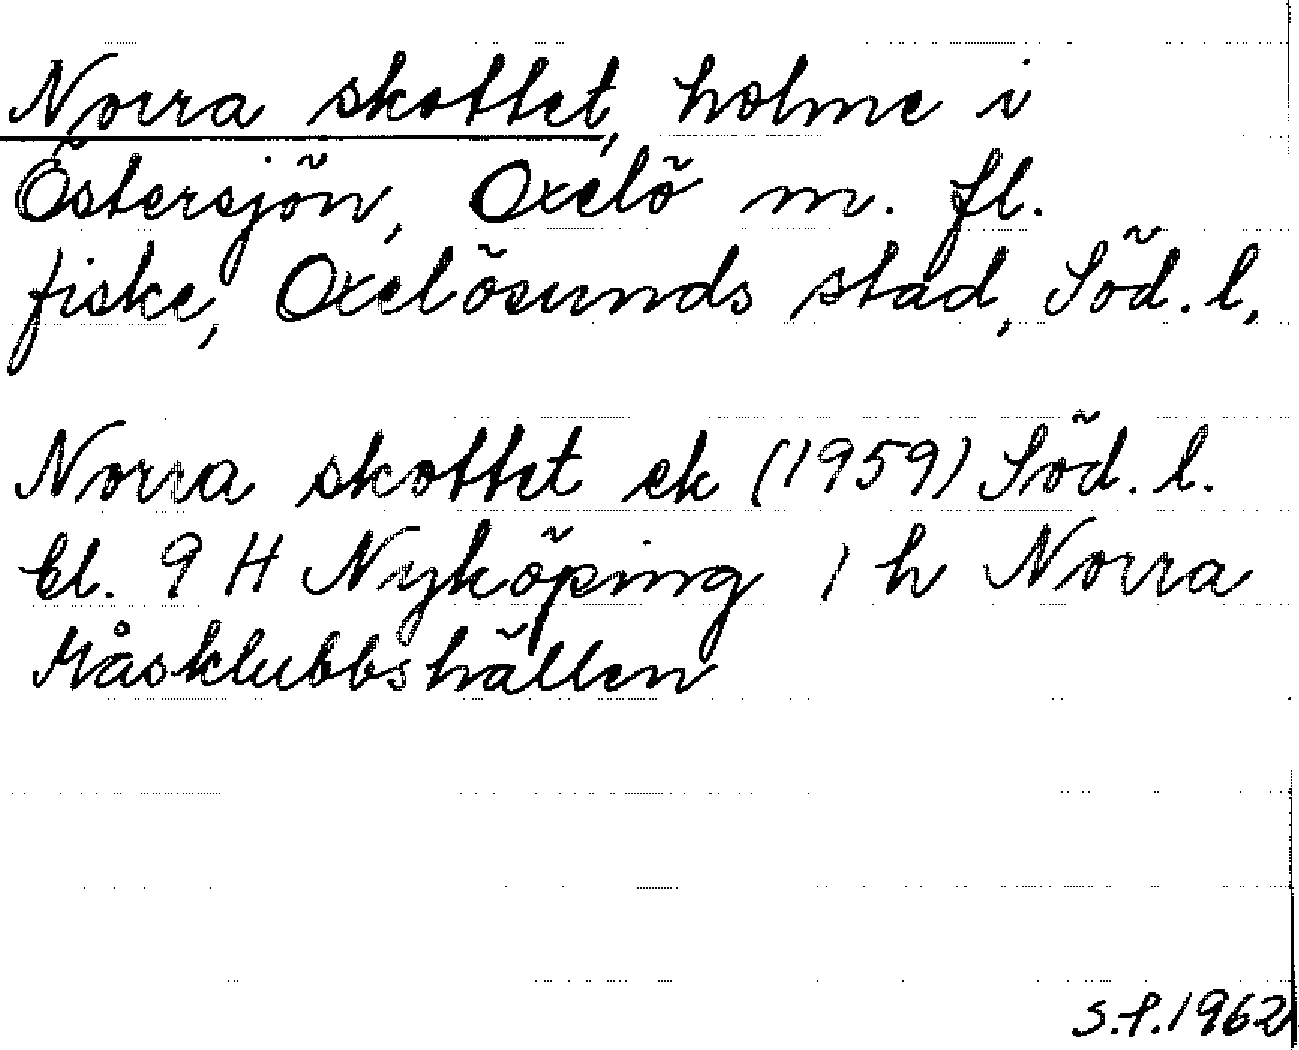 Norra skottet, holme i
Östersjön, Oxelö m. fl.
fiske, Oxelösunds stad, Söd. l.
Norra skottet ek (1959) Söd. l.
bl. 9 H Nyköping 1 h Norra
Måsklubbshällen
S.P. 1962